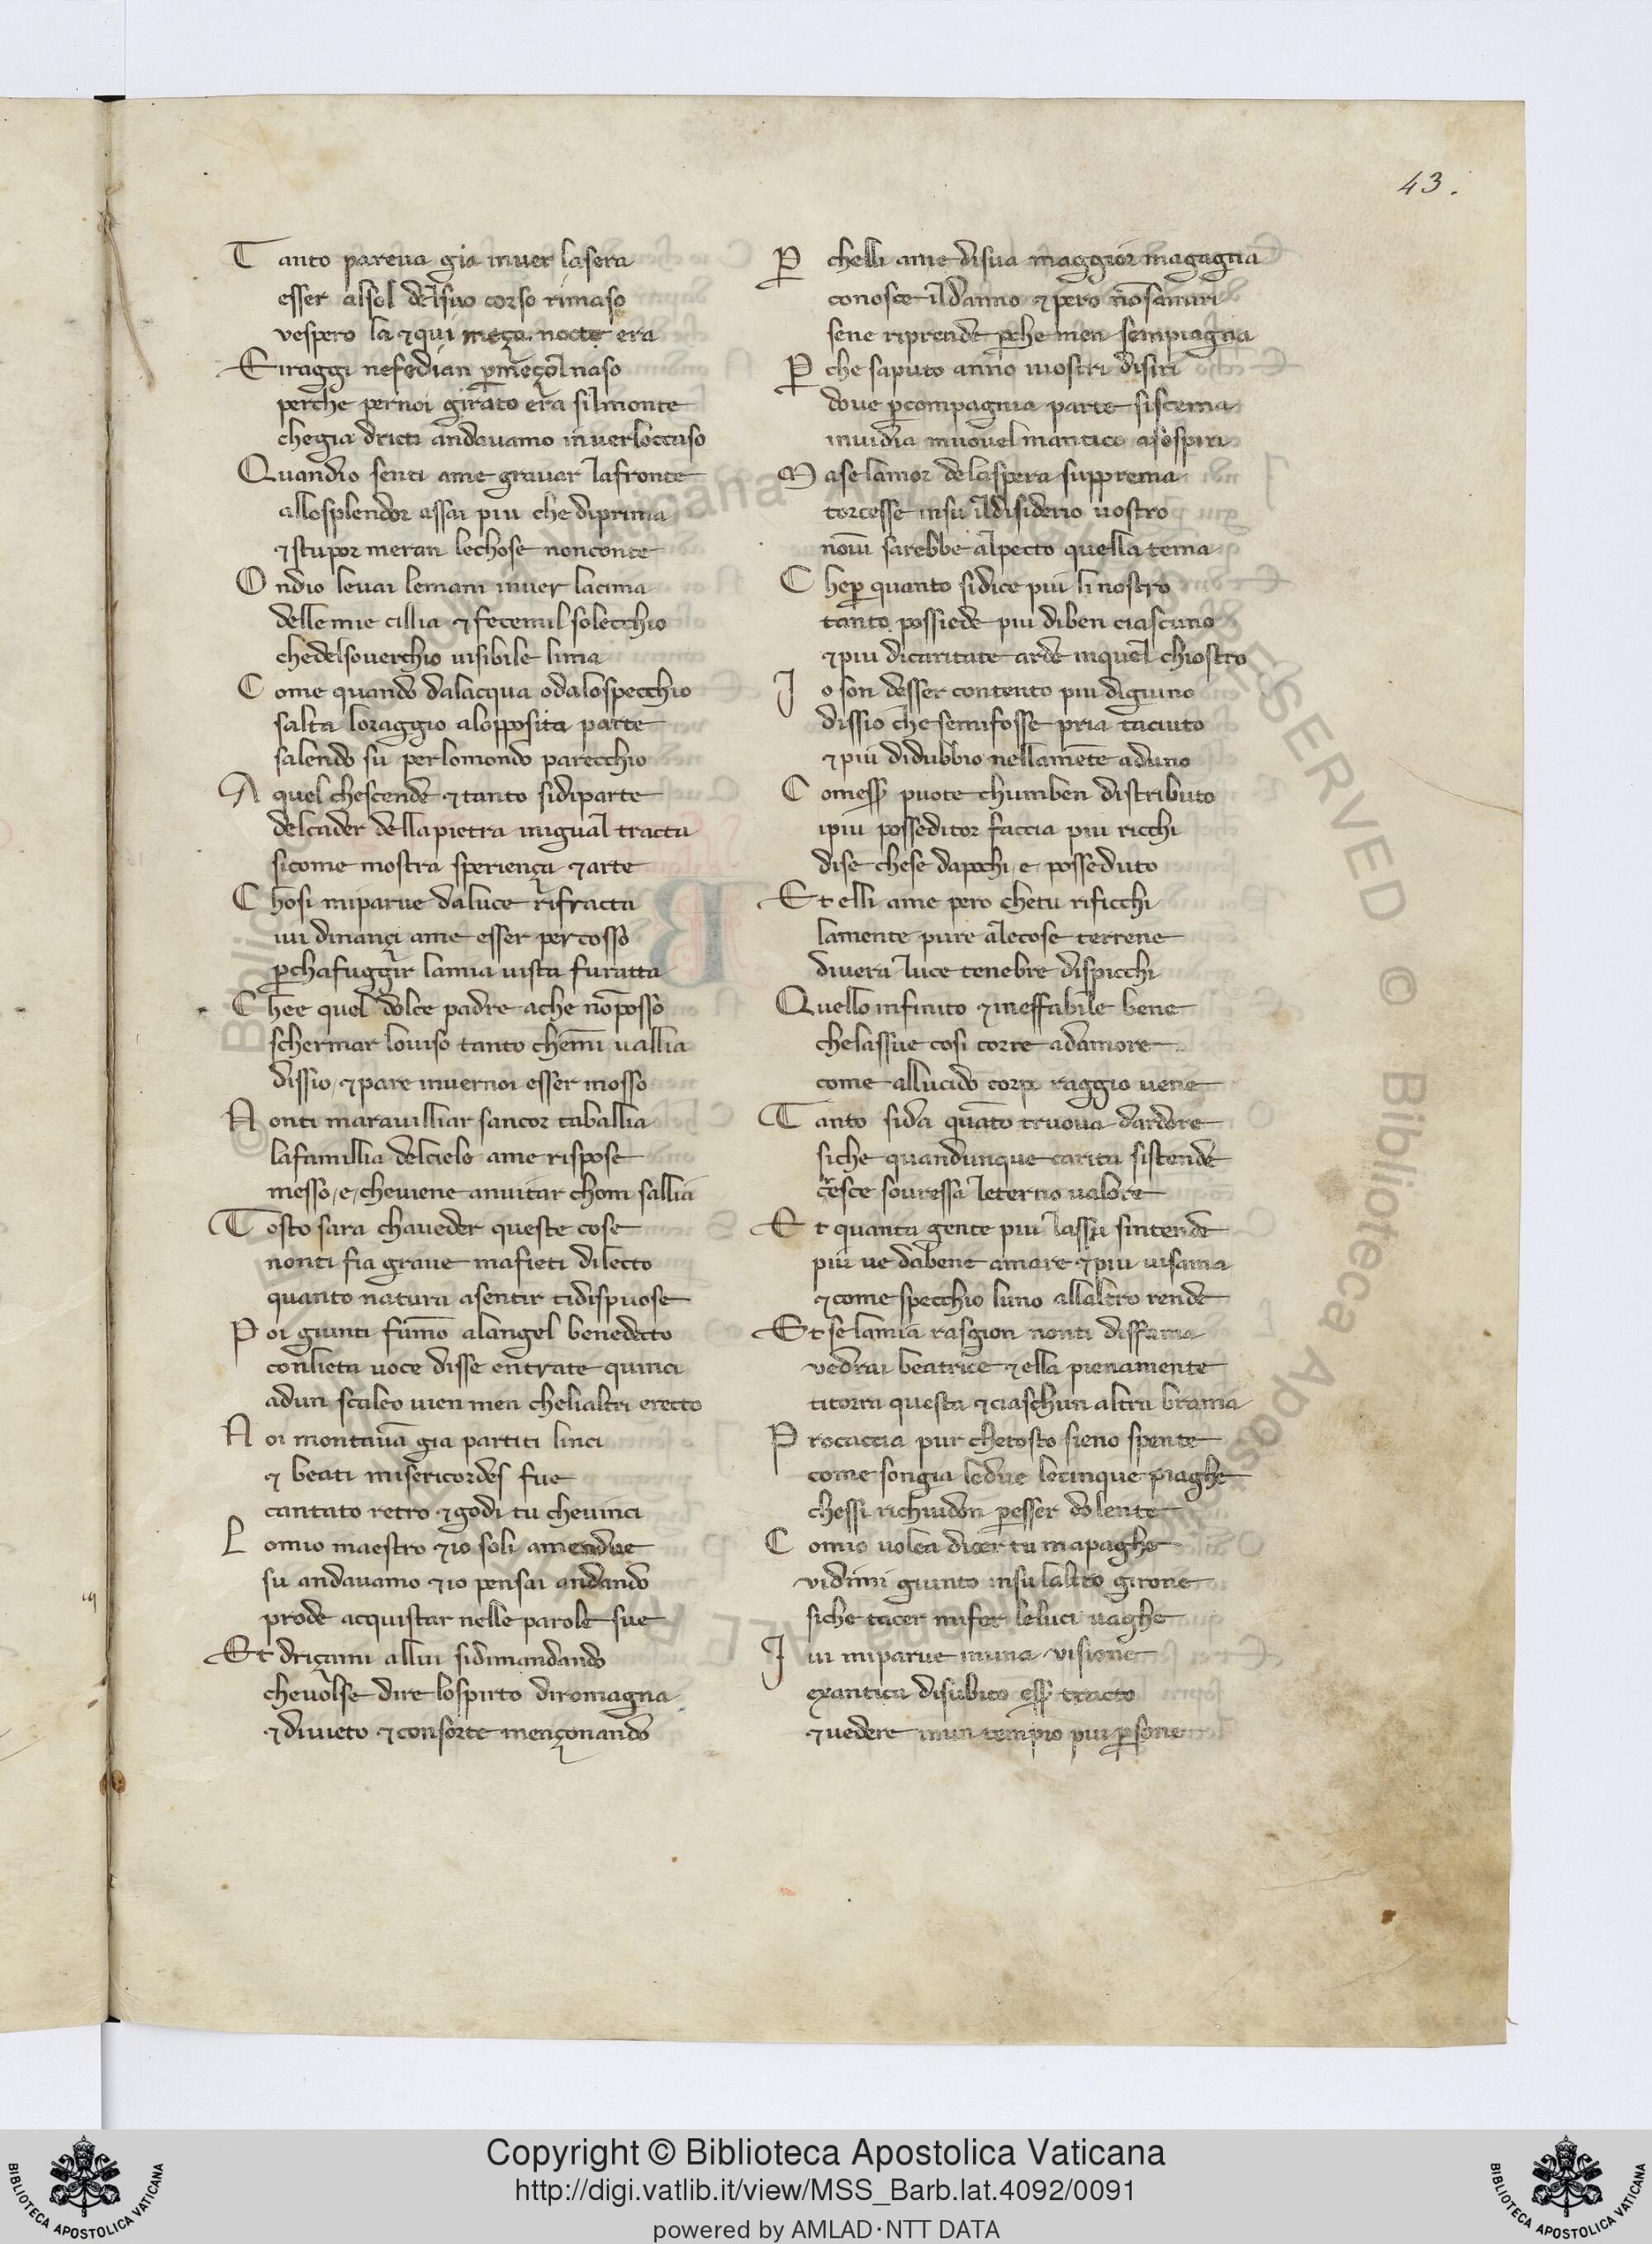 43.
T anto pareua gia inuer lasera
esser alsol delsuo corso rimaso
vespero la ⁊ qui meça nocte era
E iraggi nefedian p̲ meçol naso
perche pernoi girato era silmonte
chegia dricti andauamo inuerloccaso
Quandio senti ame grauar lafronte
allosplendor assai piu che diprima
⁊ stupor meran lechose nonconte
O ndio leuai lemani inuer lacima
delle mie cillia ⁊ fecemil solecchio
chedelsouerchio uisibile lima
C ome quando dalacqua odalospecchio
salta loraggio alopposita parte
salendo su perlomondo parecchio
A quel chescende ⁊ tanto sidiparte
delcader dellapietra inigual tracta
sicome mostra speriença ⁊ arte
C hosi miparue daluce rifracta
iui dinançi ame esser percosso
p̲chafuggir lamia uista furatta
C hee quel dolce padre ache nō posso
schermar louiso tanto chemī uallia
dissio ⁊ pare inuernoi esser mosso
N onti marauilliar sancor taballia
lafamillia delcielo ame rispose
messo e cheuiene anuitar chom sallia
T osto sara chaueder queste cose
nonti fia graue mafieti dilecto
quanto natura asentir tidispuose
P oi giunti fūmo alangel benedecto
conlieta uoce disse entrate quinci
adun scaleo uien men chelialtri erecto
N oi montauā gia partiti linci
⁊ beati misericordes fue
cantato retro ⁊ godi tu cheuinci
L omio maestro ⁊ io soli amendue
su andauamo ⁊ io pensai andando
prode acquistar nelle parole sue
Et driçami allui sidimandando
cheuolse dire lospirto diromagna
⁊ diuieto ⁊ consorte mençonando
P̲ chelli ame disua maggior magagna
conosce ildanno ⁊ pero nō samiri
sene riprende p̲che men sempiagna
P̲ che saputo anno uostri disiri
doue p̲ compagnia parte siscema
inuidia muouel mantico asospiri
M a se lamor delaspera supprema
torcesse insu ildisiderio uostro
noiui sarebbe alpecto quella tema
C hep̲ quanto sidice piu li nostro
tanto possiede piu diben ciascuno
⁊ piu dicaritate arde inquel chiostro
I o son desser contento piu digiuno
dissio che semifosse pria taciuto
⁊ piu didubbio nellamente aduno
C omess̲ puote chumben distributo
ipiu posseditor faccia piu ricchi
dise chese dapochi e posseduto
Et elli ame pero chetu rificchi
lamente pure alecose terrene
diuera luce tenebre dispicchi
Quello infinito ⁊ ineffabile bene
chelassue cosi corre adamore
come allucido corp̲ raggio uene
T anto sida quāto truoua dardore
siche quandunque carita sistende
cresce souressa leterno ualore
E t quanta gente piu lassu sintende
piu ue dabene amare ⁊ piu uisama
⁊ come specchio luno allaltro rende
Et se lamia rasgion nonti diffama
vedrai beatrice ⁊ ella pienamente
titorra questa ⁊ ciaschun altra brama
P rocaccia pur chetosto sieno spente
come songia ledue lecinque piaghe
chessi richiudon p̲esser dolente
C omio uolea dicer tu mapaghe
vidimi giunto insu laltro girone
siche tacer mifer leluci uaghe
I ui miparue inuna visione
exantica disubito ess̲ tracto
⁊ uedere inun tempio piu p̲sone
Copyright © Biblioteca Apostolica Vaticana
http://digi.vatlib.it/view/MSS_Barb.lat.4092/0091
powered by AMLAD·NTT DATA